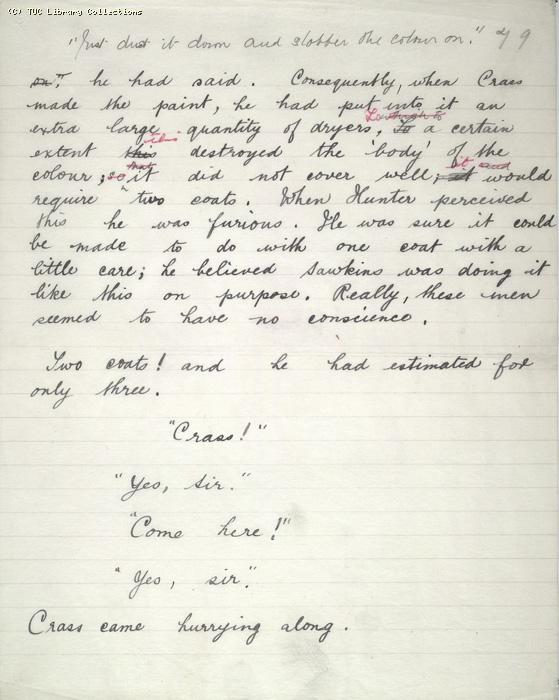 (C) TUC Library Collections
"Just dust it down and slobber the colour on." 79
on." he had said. Consequently, when Crass
made the paint, he had put into it an
extra large quantity of dryers, To a certain
extent this this destroyed the 'body' of the
colour; so that it did not cover well; it would
require two coats. When Hunter perceived
this he was furious. He was sure it could
be made to do with one coat with a
little care; he believed Sawkins was doing it
like this on purpose. Really, these men
seemed to have no conscience.
Two coats! and he had estimated for
only three.
"Crass!"
"Yes, sir."
"Come here!"
"Yes, sir."
Crass came hurrying along.